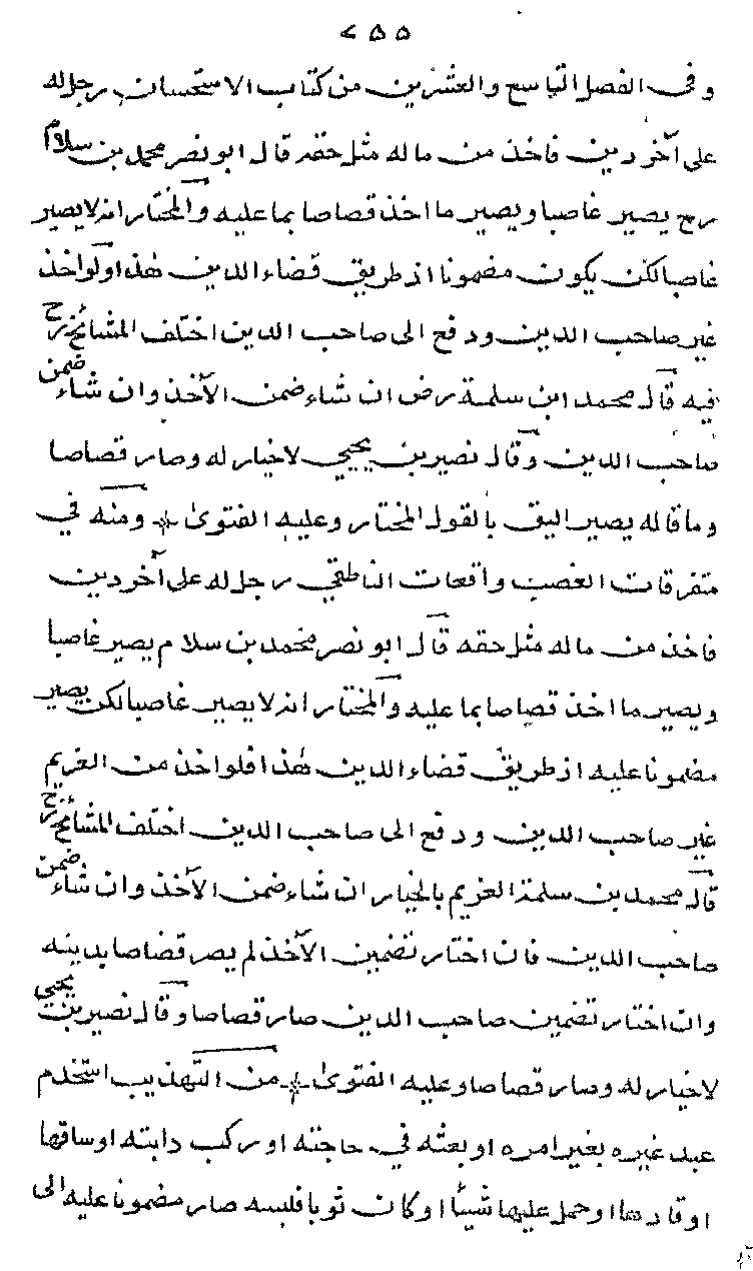 ٢٥٥
وفي الفصل التاسع والعشرين من كتاب الاستحسان رجل له
على آخر دين فاخذ من ماله مثل حقه قال ابو نصر محمد بن سلام
رح يصير غاصبا ويصير ما اخذ قصاصا بما عليه والمختار انه لا يصير
غاصبا لكن يكون مضمونا اذ طريق قضاء الدين هذا ولو اخذ
غير صاحب الدين ودفع الى صاحب الدين اختلف المشائخ رح
فيه قال محمد ابن سلمة رض ان شاء ضمن الآخذ وان شاء ضمن
صاحب الدين وقال نصير بن يحيي لا خيار له وصار قصاصا
وما قاله يصير اليق بالقول المختار وعليه الفتوى * ومنه في
متفرقات الغصب واقعات الناطفي رجل له على آخر دين
فاخذ من ماله مثل حقه قال ابو نصر محمد بن سلام يصير غاصبا
ويصير ما اخذ قصاصا بما عليه والمختار انه لا يصير غاصبا لكن يصير
مضمونا عليه اذ طريق قضاء الدين هذا فلو اخذ من الغريم
غير صاحب الدين ودفع الى صاحب الدين اختلف المشائخ رح
قال محمد بن سلمة الغريم بالخيار ان شاء ضمن الآخذ وان شاء ضمن
صاحب الدين فان اختار تضمين الآخذ لم يصر قصاصا بدينه
وان اختار تضمين صاحب الدين صار قصاصا وقال نصير بن يحيي
لا خيار له وصار قصاصا وعليه الفتوى * من التهذيب استخدم
عبد غيره بغير امره او بعثه في حاجته او ركب دابته او ساقها
او قادها او حمل عليها شيئا او كان ثوبا فلبسه صار مضمونا عليه الى